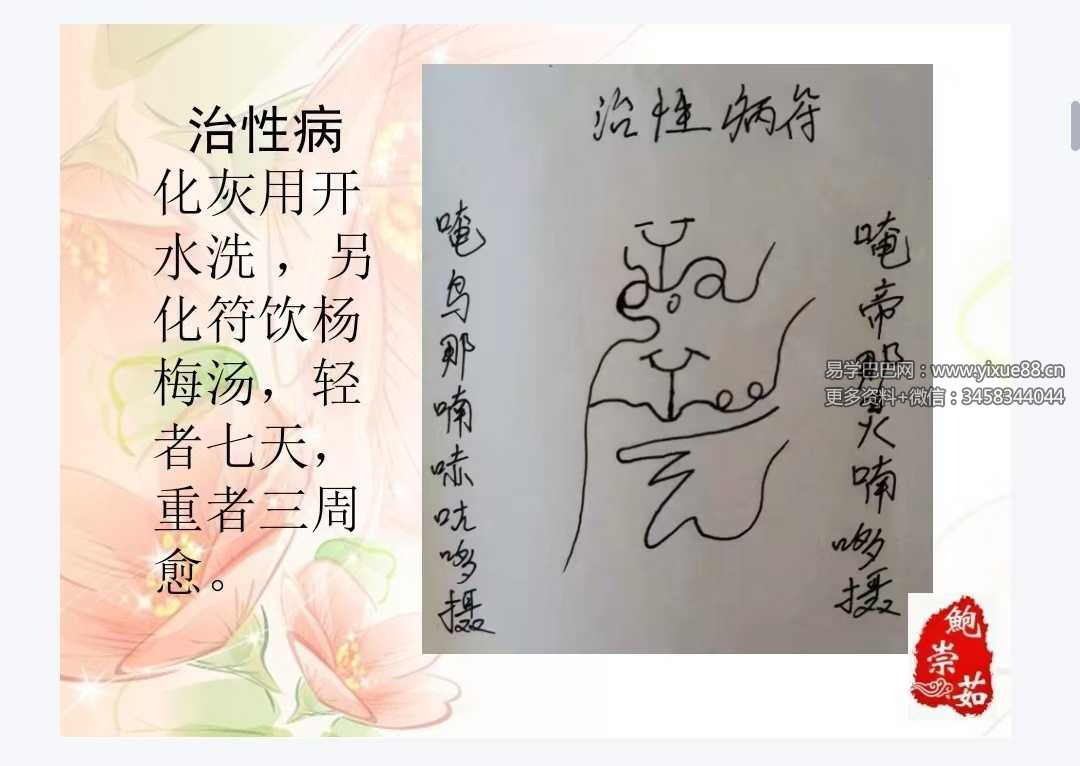 治性病
化灰用开
水洗，另
化符饮杨
梅汤，轻
者七天，
重者三周
愈。
治性病符
唵乌那喃嗪吭哆摄
唵帝那昊喃哆摄
易学巴巴网：www.yixue88.cn
更多资料+微信：3458344044
鲍崇茹